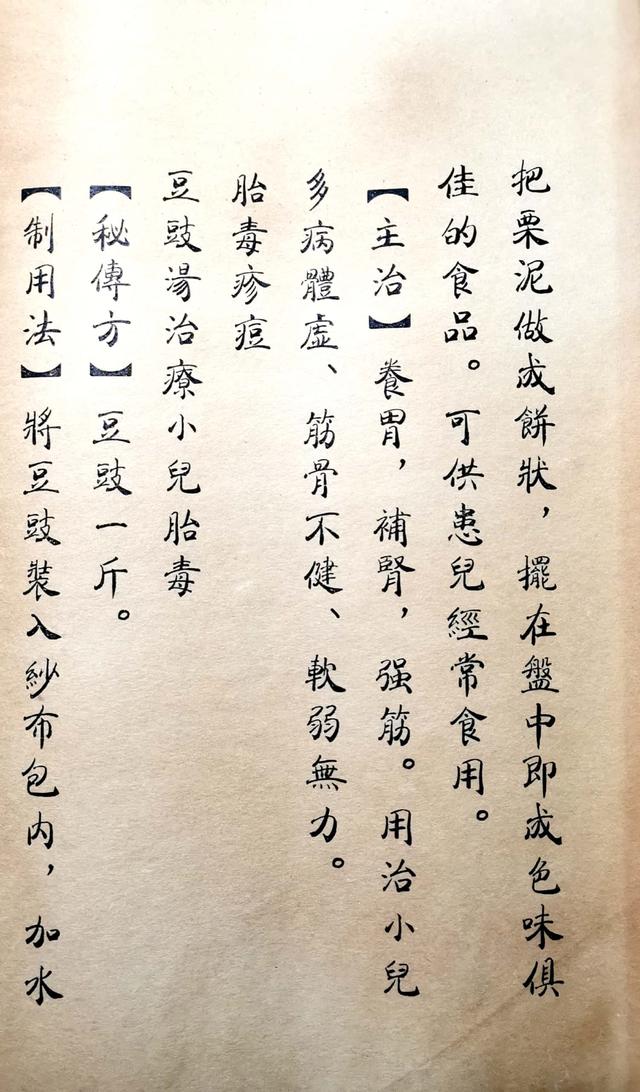 把栗泥做成餅狀，擺在盤中即成色味俱
佳的食品。可供患兒經常食用。
【主治】養胃，補腎，强筋。用治小兒
多病體虛、筋骨不健、軟弱無力。
胎毒疹痘
豆豉湯治療小兒胎毒
【秘傳方】豆豉一斤。
【制用法】將豆豉裝入紗布包内，加水